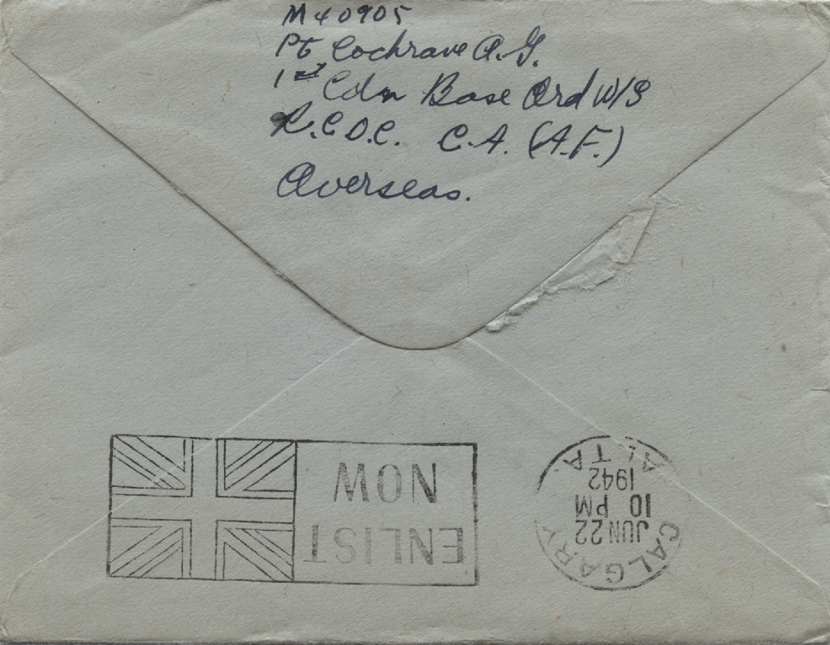 M40905
Pt Cochrave A.G.
1st Cdn Base Ord W/S
R.C.O.C. C.A. (A.F.)
Overseas.
ENLIST
NOW
CALGARY
JUN 22
10 PM
1942
ALTA